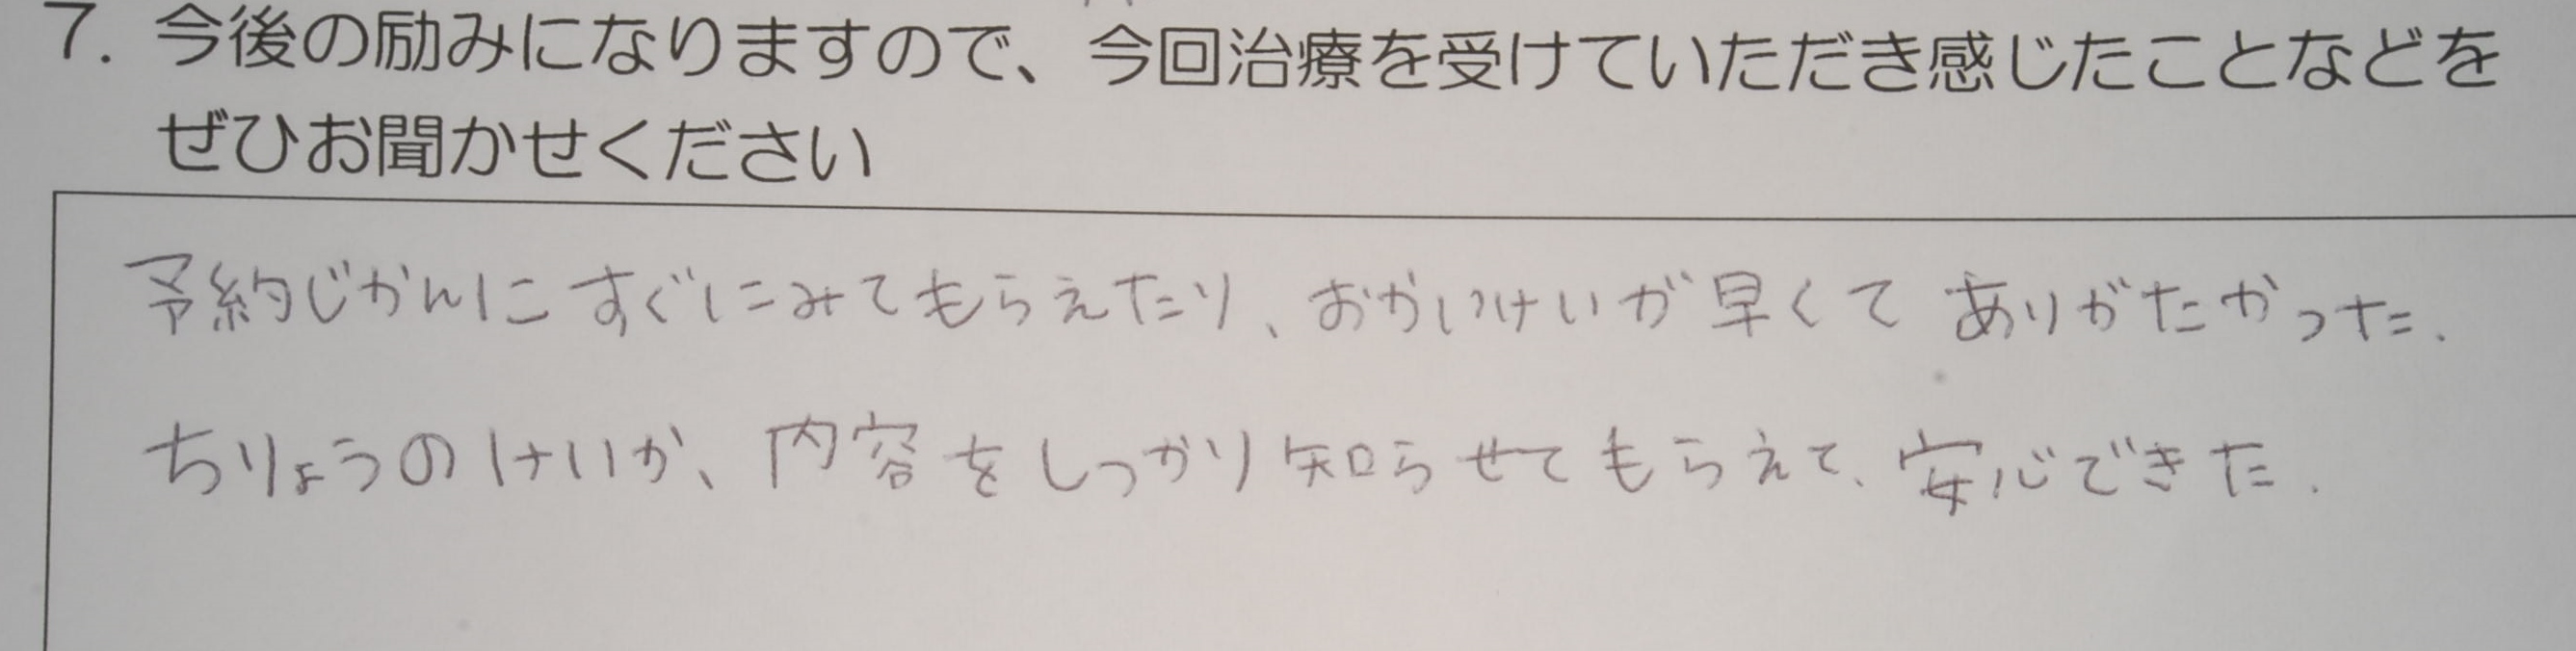 7. 今後の励みになりますので、今回治療を受けていただき感じたことなどを
ぜひお聞かせください
予約じかんにすぐにみてもらえたり、おかいけいが早くてありがたかった.
ちりょうのけいか、内容をしっかり知らせてもらえて、安心できた.